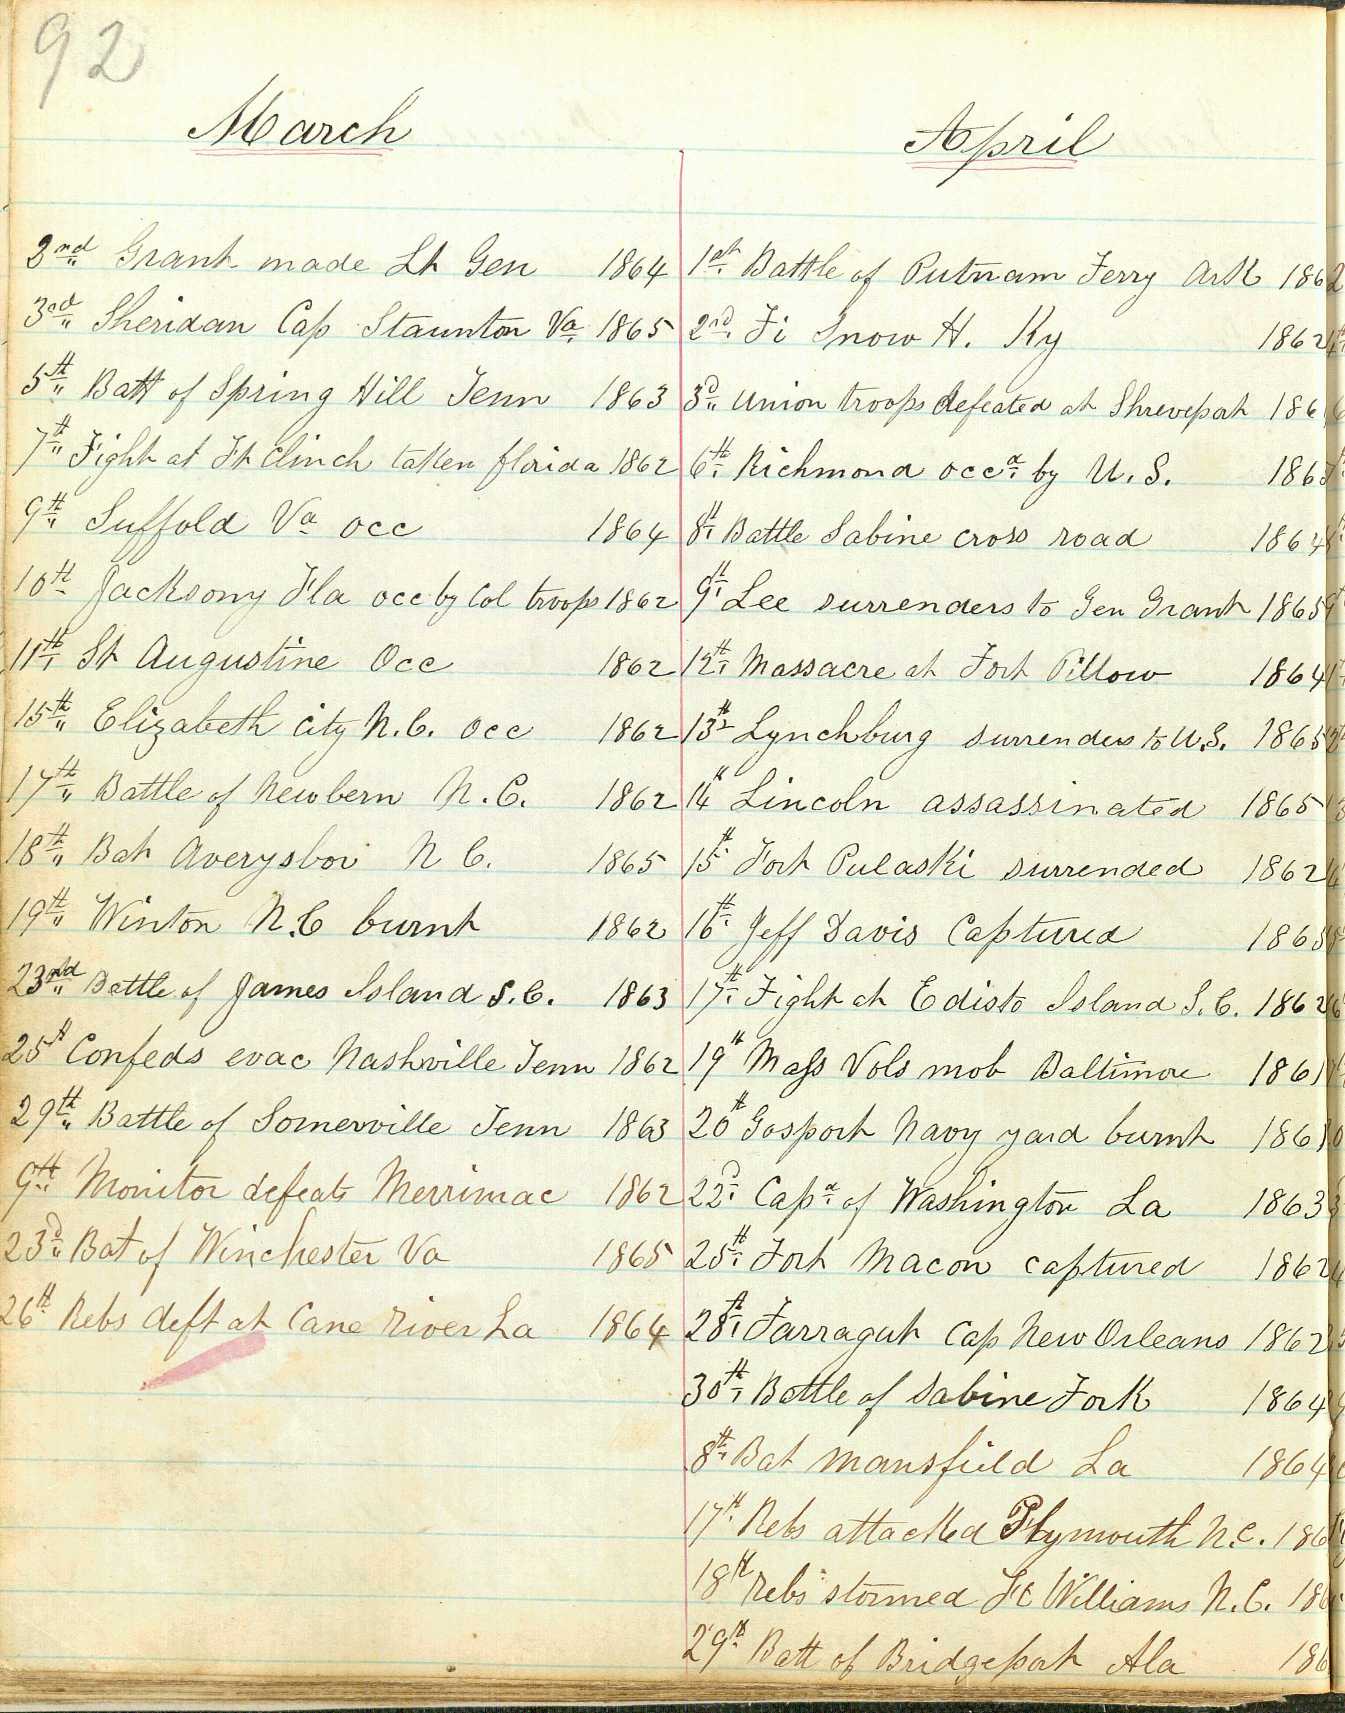 92
March
3nd Grant made Lt Gen 1864
3rd Sheridan Cap Staunton Va 1865
5th Batt of Spring Hill Tenn 1863
7th Fight at Ft Clinch taken florida 1862
9th Suffold Va occ 1864
10th Jacksony Fla occ by Col troops 1862
11th St Augustine Occ 1862
15th Elizabeth City N.C. occ 1862
17th Battle of Newbern N.C. 1862
18th Bat Averysboro N C. 1865
19th Winton N.C burnt 1862
23nd Battle of James Island S.C. 1863
25th Confeds evac Nashville Tenn 1862
29th Battle of Somerville Tenn 1863
9th Monitor defeats Merrimac 1862
23d Bat of Winchester Va 1865
26th Rebs deft at Cane River La 1864
April
1st Battle of Putnam Ferry Ark 1862
2nd Fi Snow H. Ky 1862
3d Union troops defeated at Shreveport 186
6th Richmond occd by U.S. 1865
8th Battle Sabine cross road 1864
9th Lee surrenders to Gen Grant 1865
12th Massacre at Fort Pillow 1864
13th Lynchburg surrenders to U.S. 1865
14th Lincoln assassinated 1865
15th Fort Pulaski surrended 1862
16th Jeff Davis Captured 1865
17th Fight at Edisto Island S.C. 1862
19th Mass Vols mob Baltimore 1861
20th Gosport Navy yard burnt 1861
22d Capd of Washington La 1863
25th Fort Macon captured 1862
28th Farragut Cap New Orleans 1862
30th Battle of Sabine Fork 1864
8th Bat Mansfield La 1864
17th Rebs attacked Plymouth N.C. 186
18th Rebs stormed Ft Williams N.C. 186
29th Batt of Bridgeport Ala 186